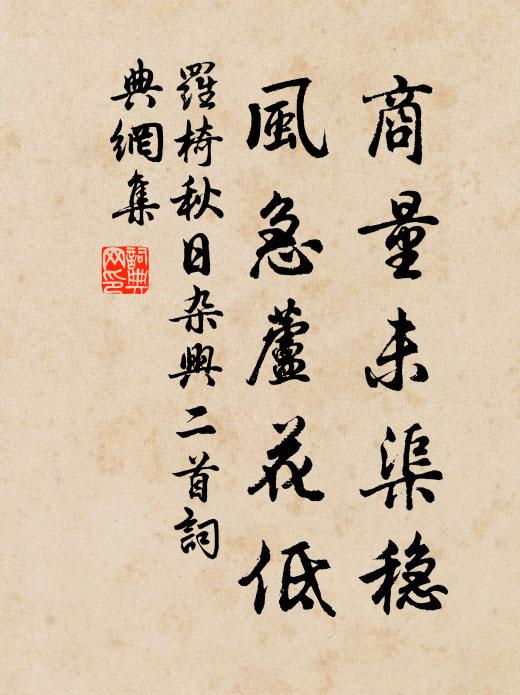 商量未渠穏
風急蘆花低
羅椅秋日杂興二首詞
典網集
詞典網印